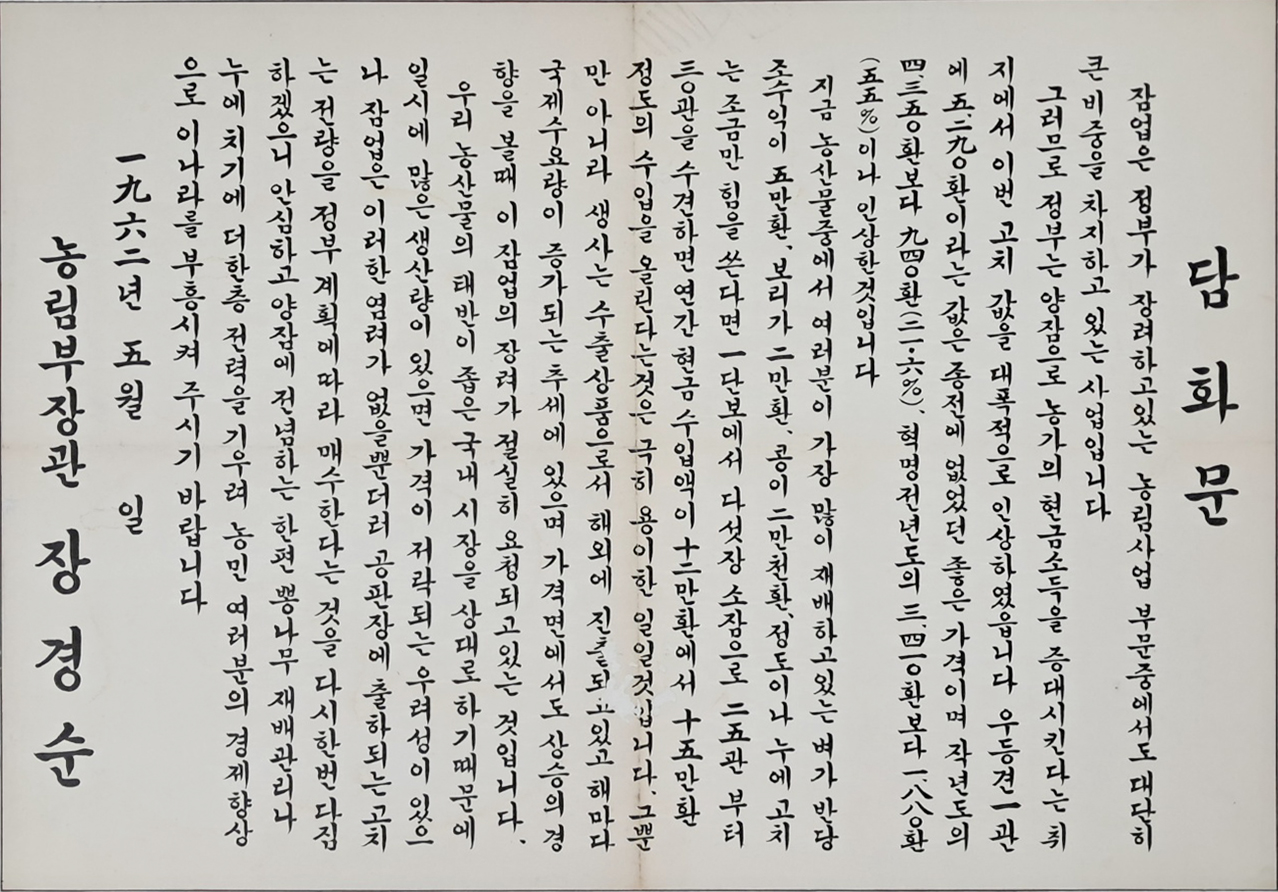 담화문
잠업은 정부가 장려하고있는 농림사업 부문중에서도 대단히
큰 비중을 차지하고 있는 사업입니다
그러므로 정부는 양잠으로 농가의 현금소득을 증대시킨다는 취
지에서 이번 고치 값을 대폭적으로 인상하였읍니다 우등견 一관
에 五、二九〇환이라는 값은 종전에 없었던 좋은 가격이며 작년도의
四、三五〇환보다 九四〇환(二一·六%)、혁명전년도의 三、四一〇환보다 一、八八〇환
(五五%)이나 인상한것입니다
지금 농산물중에서 여러분이 가장 많이 재배하고있는 벼가 반당
조수익이 五만환、보리가 二만환、콩이 二만천환、정도이나 누에고치
는 조금만 힘을 쓴다면 一단보에서 다섯장 소잠으로 二五관 부터
三〇관을 수견하면 연간 현금 수입액이 十二만환에서 十五만환
정도의 수입을 올린다는것은 극히 용이한 일일것입니다、그뿐
만 아니라 생사는 수출상품으로서 해외에 진출되고있고 해마다
국제수요량이 증가되는 추세에 있으며 가격면에서도 상승의 경
향을 볼때 이 잠업의 장려가 절실히 요청되고있는 것입니다、
우리 농산물의 태반이 좁은 국내 시장을 상대로하기때문에
일시에 많은생산량이 있으면 가격이 저락되는 우려성이 있으
나 잠업은 이러한 염려가 없을뿐더러 공판장에 출하되는고치
는 전량을 정부 계획에따라 매수한다는 것을 다시한번 다짐
하겠으니 안심하고 양잠에 전념하는 한편 뽕나무 재배관리나
누에 치기에 더한층 전력을 기우려 농민 여러분의 경제향상
으로 이나라를 부흥시켜 주시기 바랍니다
一九六二년 五월 일
농림부장관 장경순